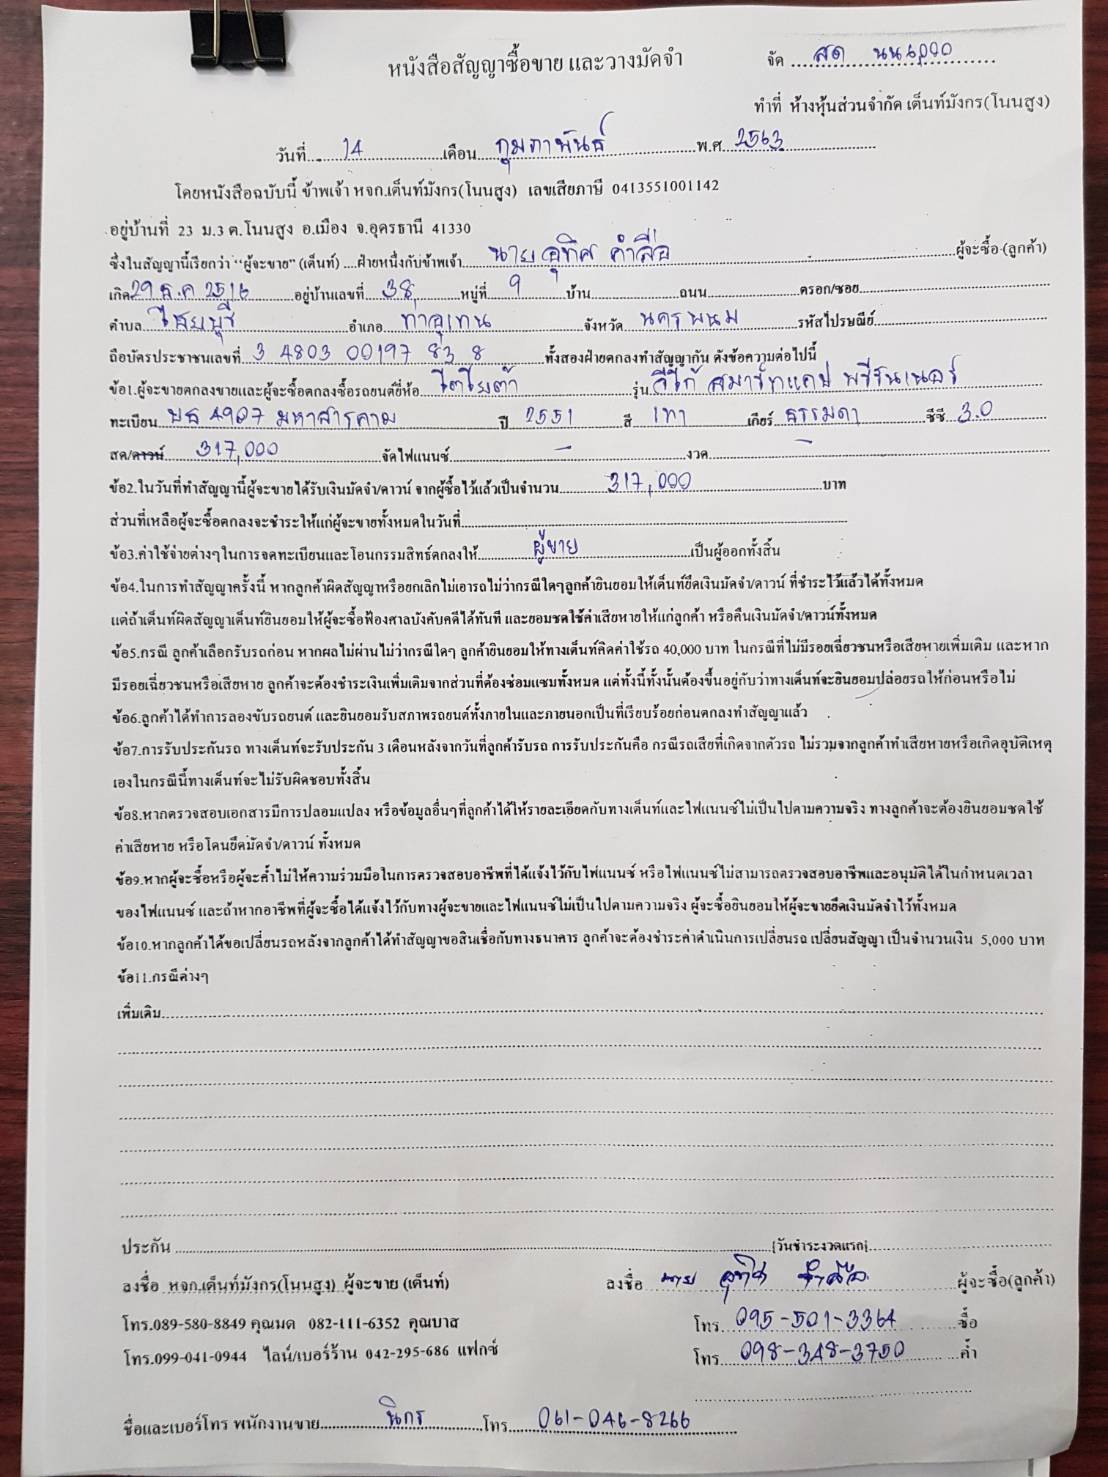 หนังสือสัญญาซื้อขาย และวางมัดจำ
จัด สด นน6,000
ทำที่ ห้างหุ้นส่วนจำกัด เต็นท์มังกร(โนนสูง)
วันที่ 14 เดือน กุมภาพันธ์ พ.ศ. 2563
โดยหนังสือฉบับนี้ ข้าพเจ้า หจก.เต็นท์มังกร(โนนสูง) เลขเสียภาษี 0413551001142
อยู่บ้านที่ 23 ม.3 ต.โนนสูง อ.เมือง จ.อุดรธานี 41330
ซึ่งในสัญญานี้เรียกว่า "ผู้จะขาย" (เต็นท์) ....ฝ่ายหนึ่งกับข้าพเจ้า นาย อุทิศ คำลือ ผู้จะซื้อ (ลูกค้า)
เกิด 29 ธ.ค 2516 อยู่บ้านเลขที่ 38 หมู่ที่ 9 บ้าน ถนน ตรอก/ซอย
ตำบล ไชยบุรี อำเภอ ท่าอุเทน จังหวัด นครพนม รหัสไปรษณีย์
ถือบัตรประชาชนเลขที่ 3 4803 00197 83 8 ทั้งสองฝ่ายตกลงทำสัญญากัน ดังข้อความต่อไปนี้
ข้อ1.ผู้จะขายตกลงขายและผู้จะซื้อตกลงซื้อรถยนต์ยี่ห้อ โตโยต้า รุ่น วีโก้ สมาร์ทแคป พรีรันเนอร์
ทะเบียน บธ 4927 มหาสารคาม ปี 2551 สี เทา เกียร์ ธรรมดา ซีซี 3.0
สด/ดาวน์ 317,000 จัดไฟแนนซ์ - งวด -
ข้อ2.ในวันที่ทำสัญญานี้ผู้จะขายได้รับเงินมัดจำ/ดาวน์ จากผู้ซื้อไว้แล้วเป็นจำนวน 317,000 บาท
ส่วนที่เหลือผู้จะซื้อตกลงจะชำระให้แก่ผู้จะขายทั้งหมดในวันที่
ข้อ3.ค่าใช้จ่ายต่างๆในการจดทะเบียนและโอนกรรมสิทธ์ตกลงให้ ผู้ขาย เป็นผู้ออกทั้งสิ้น
ข้อ4.ในการทำสัญญาครั้งนี้ หากลูกค้าผิดสัญญาหรือยกเลิกไม่เอารถไม่ว่ากรณีใดๆลูกค้ายินยอมให้เต็นท์ยึดเงินมัดจำ/ดาวน์ ที่ชำระไว้แล้วได้ทั้งหมด
แต่ถ้าเต็นท์ผิดสัญญาเต็นท์ยินยอมให้ผู้จะซื้อฟ้องศาลบังคับคดีได้ทันที และยอมชดใช้ค่าเสียหายให้แก่ลูกค้า หรือคืนเงินมัดจำ/ดาวน์ทั้งหมด
ข้อ5.กรณี ลูกค้าเลือกรับรถก่อน หากผลไม่ผ่านไม่ว่ากรณีใดๆ ลูกค้ายินยอมให้ทางเต็นท์คิดค่าใช้รถ 40,000 บาท ในกรณีที่ไม่มีรอยเฉี่ยวชนหรือเสียหายเพิ่มเติม และหาก
มีรอยเฉี่ยวชนหรือเสียหาย ลูกค้าจะต้องชำระเงินเพิ่มเติมจากส่วนที่ต้องซ่อมแซมทั้งหมด แต่ทั้งนี้ทั้งนั้นต้องขึ้นอยู่กับว่าทางเต็นท์จะยินยอมปล่อยรถให้ก่อนหรือไม่
ข้อ6.ลูกค้าได้ทำการลองขับรถยนต์ และยินยอมรับสภาพรถยนต์ทั้งภายในและภายนอกเป็นที่เรียบร้อยก่อนตกลงทำสัญญาแล้ว
ข้อ7.การรับประกันรถ ทางเต็นท์จะรับประกัน 3 เดือนหลังจากวันที่ลูกค้ารับรถ การรับประกันคือ กรณีรถเสียที่เกิดจากตัวรถ ไม่รวมจากลูกค้าทำเสียหายหรือเกิดอุบัติเหตุ
เองในกรณีนี้ทางเต็นท์จะไม่รับผิดชอบทั้งสิ้น
ข้อ8.หากตรวจสอบเอกสารมีการปลอมแปลง หรือข้อมูลอื่นๆที่ลูกค้าได้ให้รายละเอียดกับทางเต็นท์และไฟแนนซ์ไม่เป็นไปตามความจริง ทางลูกค้าจะต้องยินยอมชดใช้
ค่าเสียหาย หรือโดนยึดมัดจำ/ดาวน์ ทั้งหมด
ข้อ9.หากผู้จะซื้อหรือผู้จะค้ำไม่ให้ความร่วมมือในการตรวจสอบอาชีพที่ได้แจ้งไว้กับไฟแนนซ์ หรือไฟแนนซ์ไม่สามารถตรวจสอบอาชีพและอนุมัติได้ในกำหนดเวลา
ของไฟแนนซ์ และถ้าหากอาชีพที่ผู้จะซื้อได้แจ้งไว้กับทางผู้จะขายและไฟแนนซ์ไม่เป็นไปตามความจริง ผู้จะซื้อยินยอมให้ผู้จะขายยึดเงินมัดจำไว้ทั้งหมด
ข้อ10.หากลูกค้าได้ขอเปลี่ยนรถหลังจากลูกค้าได้ทำสัญญาขอสินเชื่อกับทางธนาคาร ลูกค้าจะต้องชำระค่าดำเนินการเปลี่ยนรถ เปลี่ยนสัญญา เป็นจำนวนเงิน 5,000 บาท
ข้อ11.กรณีต่างๆ
เพิ่มเติม
ประกัน [วันชำระงวดแรก]
ลงชื่อ หจก.เต็นท์มังกร(โนนสูง) ผู้จะขาย (เต็นท์) ลงชื่อ นาย อุทิศ คำลือ ผู้จะซื้อ(ลูกค้า)
โทร.089-580-8849 คุณมด 082-111-6352 คุณบาส โทร. 095-501-3364 ซื้อ
โทร.099-041-0944 ไลน์/เบอร์ร้าน 042-295-686 แฟกซ์ โทร 098-348-3750 ค้ำ
ชื่อและเบอร์โทร พนักงานขาย นิกร โทร 061-046-8266